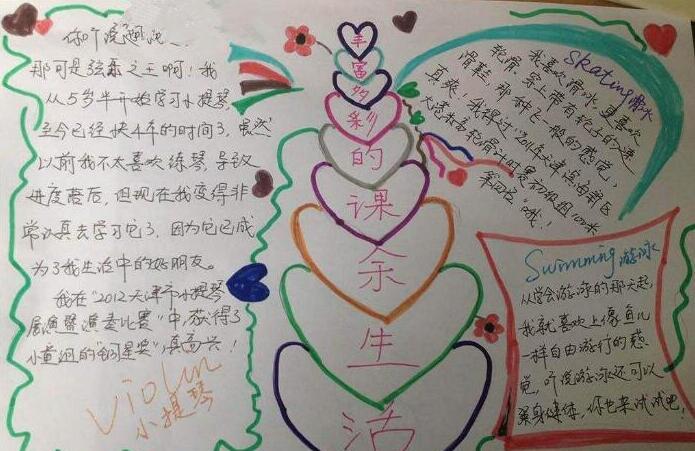 你听说过吗
那可是弦乐之王啊！我
从5岁半开始学习小提琴
至今已经快4年的时间了，虽然
以前我不太喜欢练琴，导致
进度落后，但现在我变得非
常认真去学习它了，因为它已成
为了我生活中的好朋友。
我在"2012天津市小提琴
展演暨演奏比赛"中，获得了
小童组的"明星奖"，真高兴！
Violin
小提琴
丰
富
多
彩
的
课
余
生
活
Skating 滑冰
我喜欢滑冰，更喜欢
轮滑，穿上带有轮子的速
滑鞋，那种飞一般的感觉，
真爽，我得过"2011年天津滨海新区
大港杯高轮滑计时赛初级组100米
第四名"哦！
Swimming 游泳
从学会游泳的那天起，
我就喜欢上像鱼儿
一样自由游行的感
觉，听说游泳还可以
强身健体，你也来试试吧！